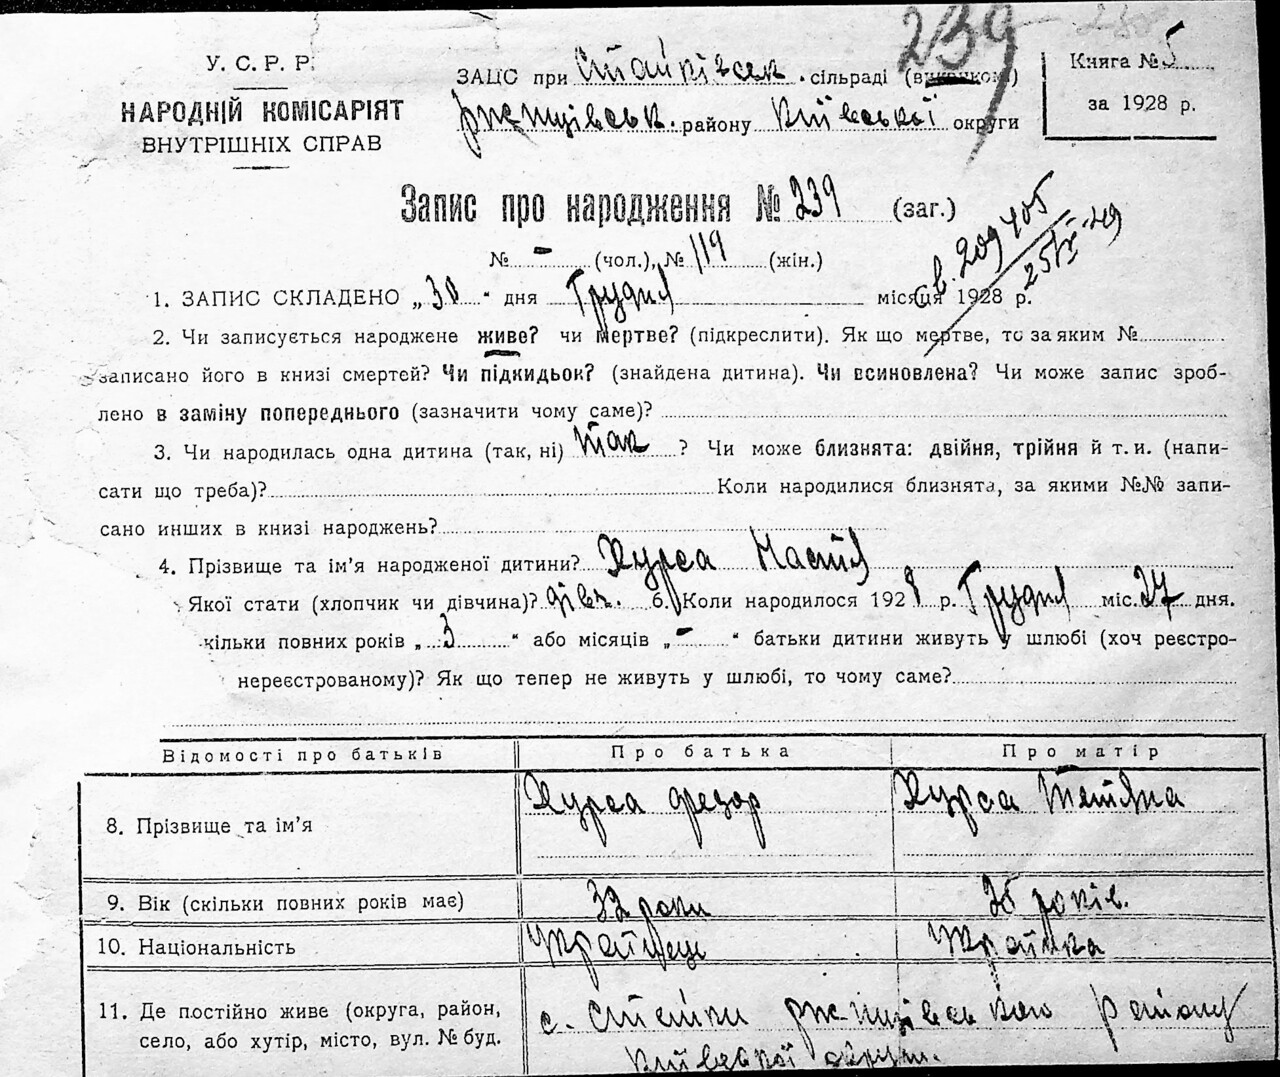 239
У. С. Р. Р.
НАРОДНІЙ КОМІСАРІЯТ
ВНУТРІШНІХ СПРАВ
ЗАЦС при Стайківськ. сільраді (виконком)
Ржищівськ. району Київської округи
Книга № 5
за 1928 р.
Запис про народження № 239 (заг.)
№ - (чол.), № 119 (жін.)
св. 209405
25/ІХ-49
1. ЗАПИС СКЛАДЕНО „30" дня Грудня місяця 1928 р.
2. Чи записується народжене живе? чи мертве? (підкреслити). Як що мертве, то за яким №
записано його в книзі смертей? Чи підкидьок? (знайдена дитина). Чи всиновлена? Чи може запис зроб-
лено в заміну попереднього (зазначити чому саме)?
3. Чи народилась одна дитина (так, ні) так ? Чи може близнята: двійня, трійня й т. и. (напи-
сати що треба)? Коли народилися близнята, за якими №№ запи-
сано инших в книзі народжень?
4. Прізвище та ім'я народженої дитини? Хурса Настя
Якої стати (хлопчик чи дівчина)? дівч. 6. Коли народилося 1928 р. Грудня міс. 27 дня.
кільки повних років „3" або місяців „-" батьки дитини живуть у шлюбі (хоч реєстро-
нереєстрованому)? Як що тепер не живуть у шлюбі, то чому саме?
Відомості про батьків Про батька Про матір
8. Прізвище та ім'я Хурса Федор Хурса Тетяна
9. Вік (скільки повних років має) 32 роки 25 років.
10. Національність Українець Українка
11. Де постійно живе (округа, район,
село, або хутір, місто, вул. № буд.
с. Стайки Ржищівського району
Київської округи.